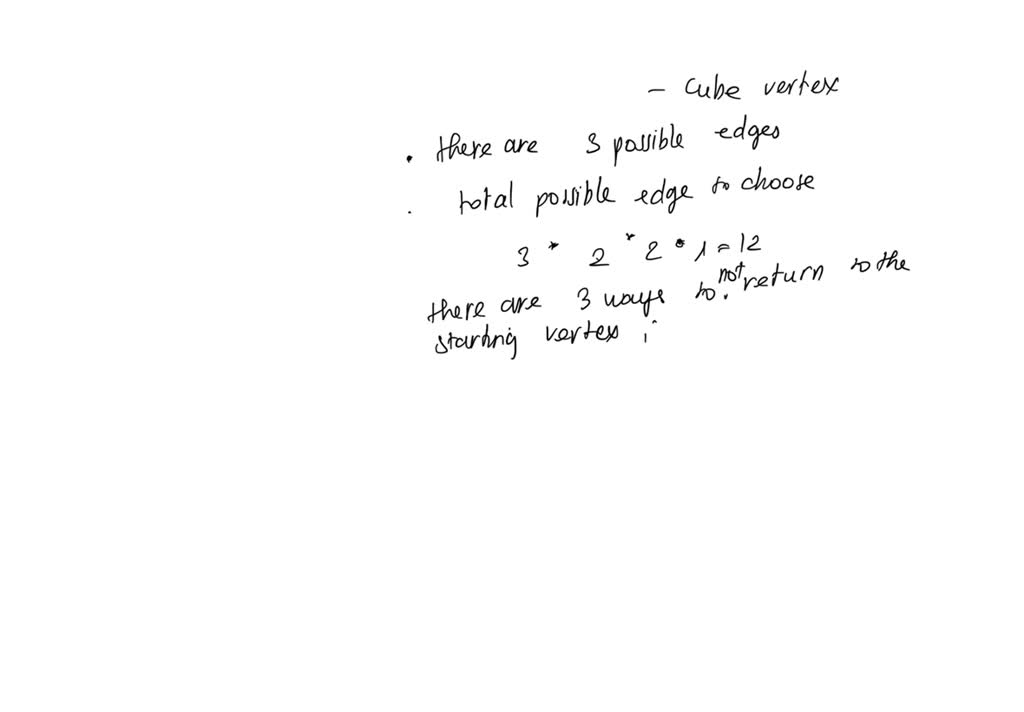 - cube vertex
. there are 3 possible edges
. total possible edge to choose
3 * 2 * 2 • 1 = 12
there are 3 ways to not return to the
starting vertex i